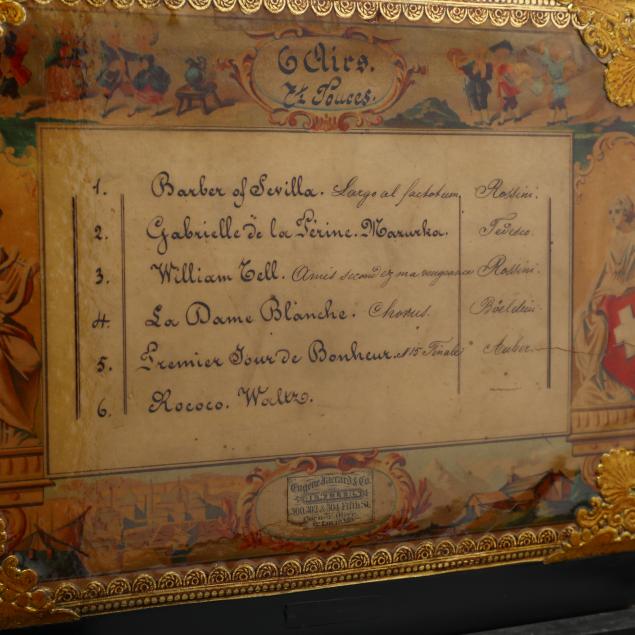 6 Airs.
7¼ Pouces.
1. Barber of Sevilla. Largo al factotum. Rossini.
2. Gabrielle de la Périne. Mazurka. Tedesco.
3. William Tell. Amis secondez ma vengeance Rossini.
4. La Dame Blanche. Chorus. Böeldieu
5. Premier Jour de Bonheur. N15 Finale Auber.
6. Rococo. Waltz.
Eugene Jaccard & Co.
JEWELERS
300, 302 & 304 FIFTH St.
Cor. Olive